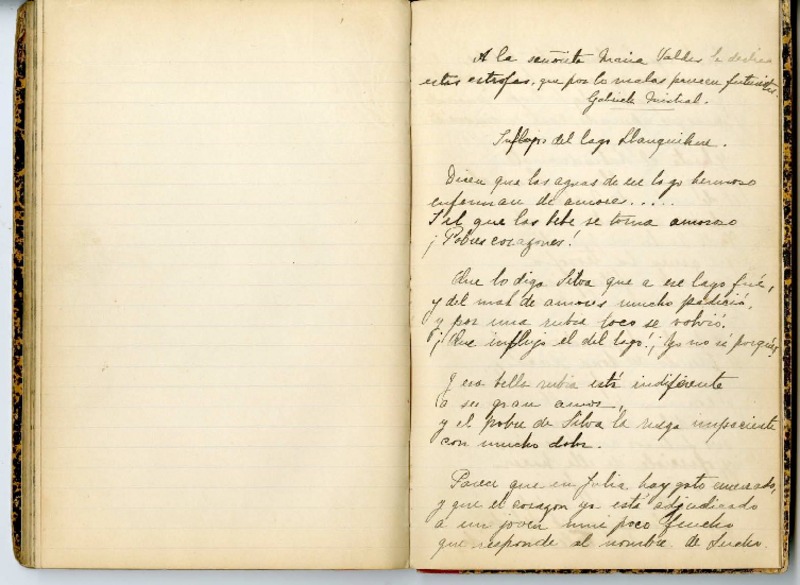 A la señorita Maria Valdes le dedica
estas estrofas, que por lo malas parecen futuristas.
Gabriela Mistral.
Influjo del lago Llanquihue.
Dicen que las aguas de ese lago hermoso
enferman de amores.....
I el que las bebe se torna amoroso
¡Pobres corazones!
Que lo diga Silva que a ese lago fué,
y del mal de amores mucho padeció,
y por una rubia loco se volvió.
¡Que influjo el del lago! ¡Yo no sé porqué!
Y esa bella rubia está indiferente
a su gran amor,
y el pobre de Silva la ruega impaciente
con mucho dolor.
Parece que en Julia hay gato encerrado,
y que el corazon ya está adjudicado
a un joven mui poco
que responde al nombre de Lucho.